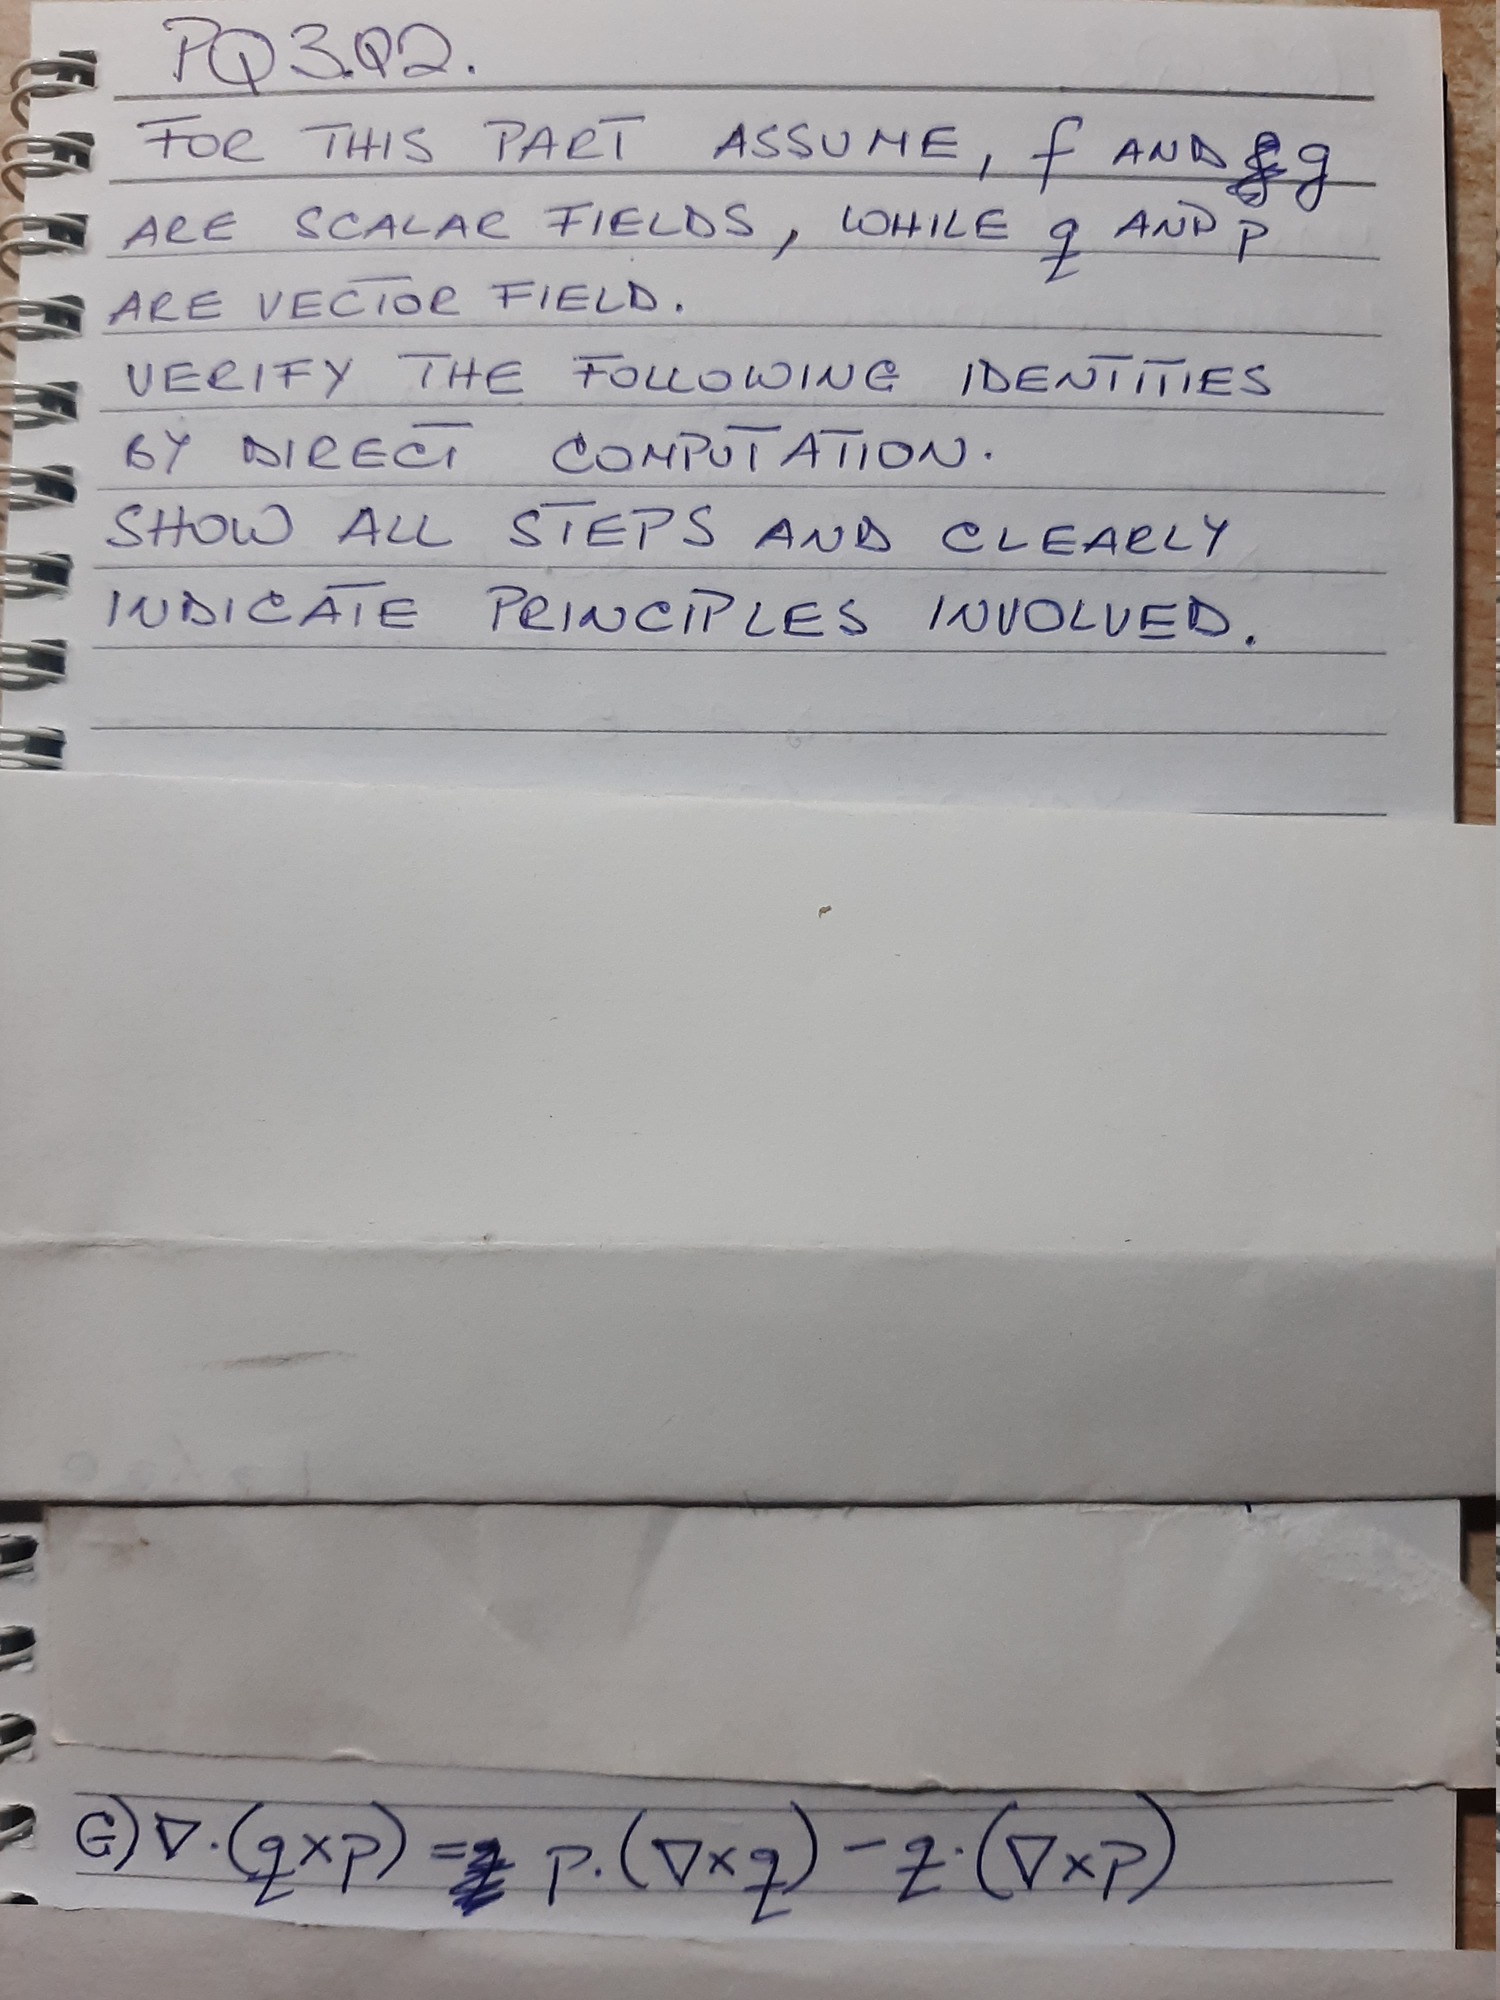 PQ3.Q2.
FOR THIS PART ASSUME, f AND g
ARE SCALAR FIELDS, WHILE q AND p
ARE VECTOR FIELD.
VERIFY THE FOLLOWING IDENTITIES
BY DIRECT COMPUTATION.
SHOW ALL STEPS AND CLEARLY
INDICATE PRINCIPLES INVOLVED.
G) ∇·(q×p) = p·(∇×q) − q·(∇×p)